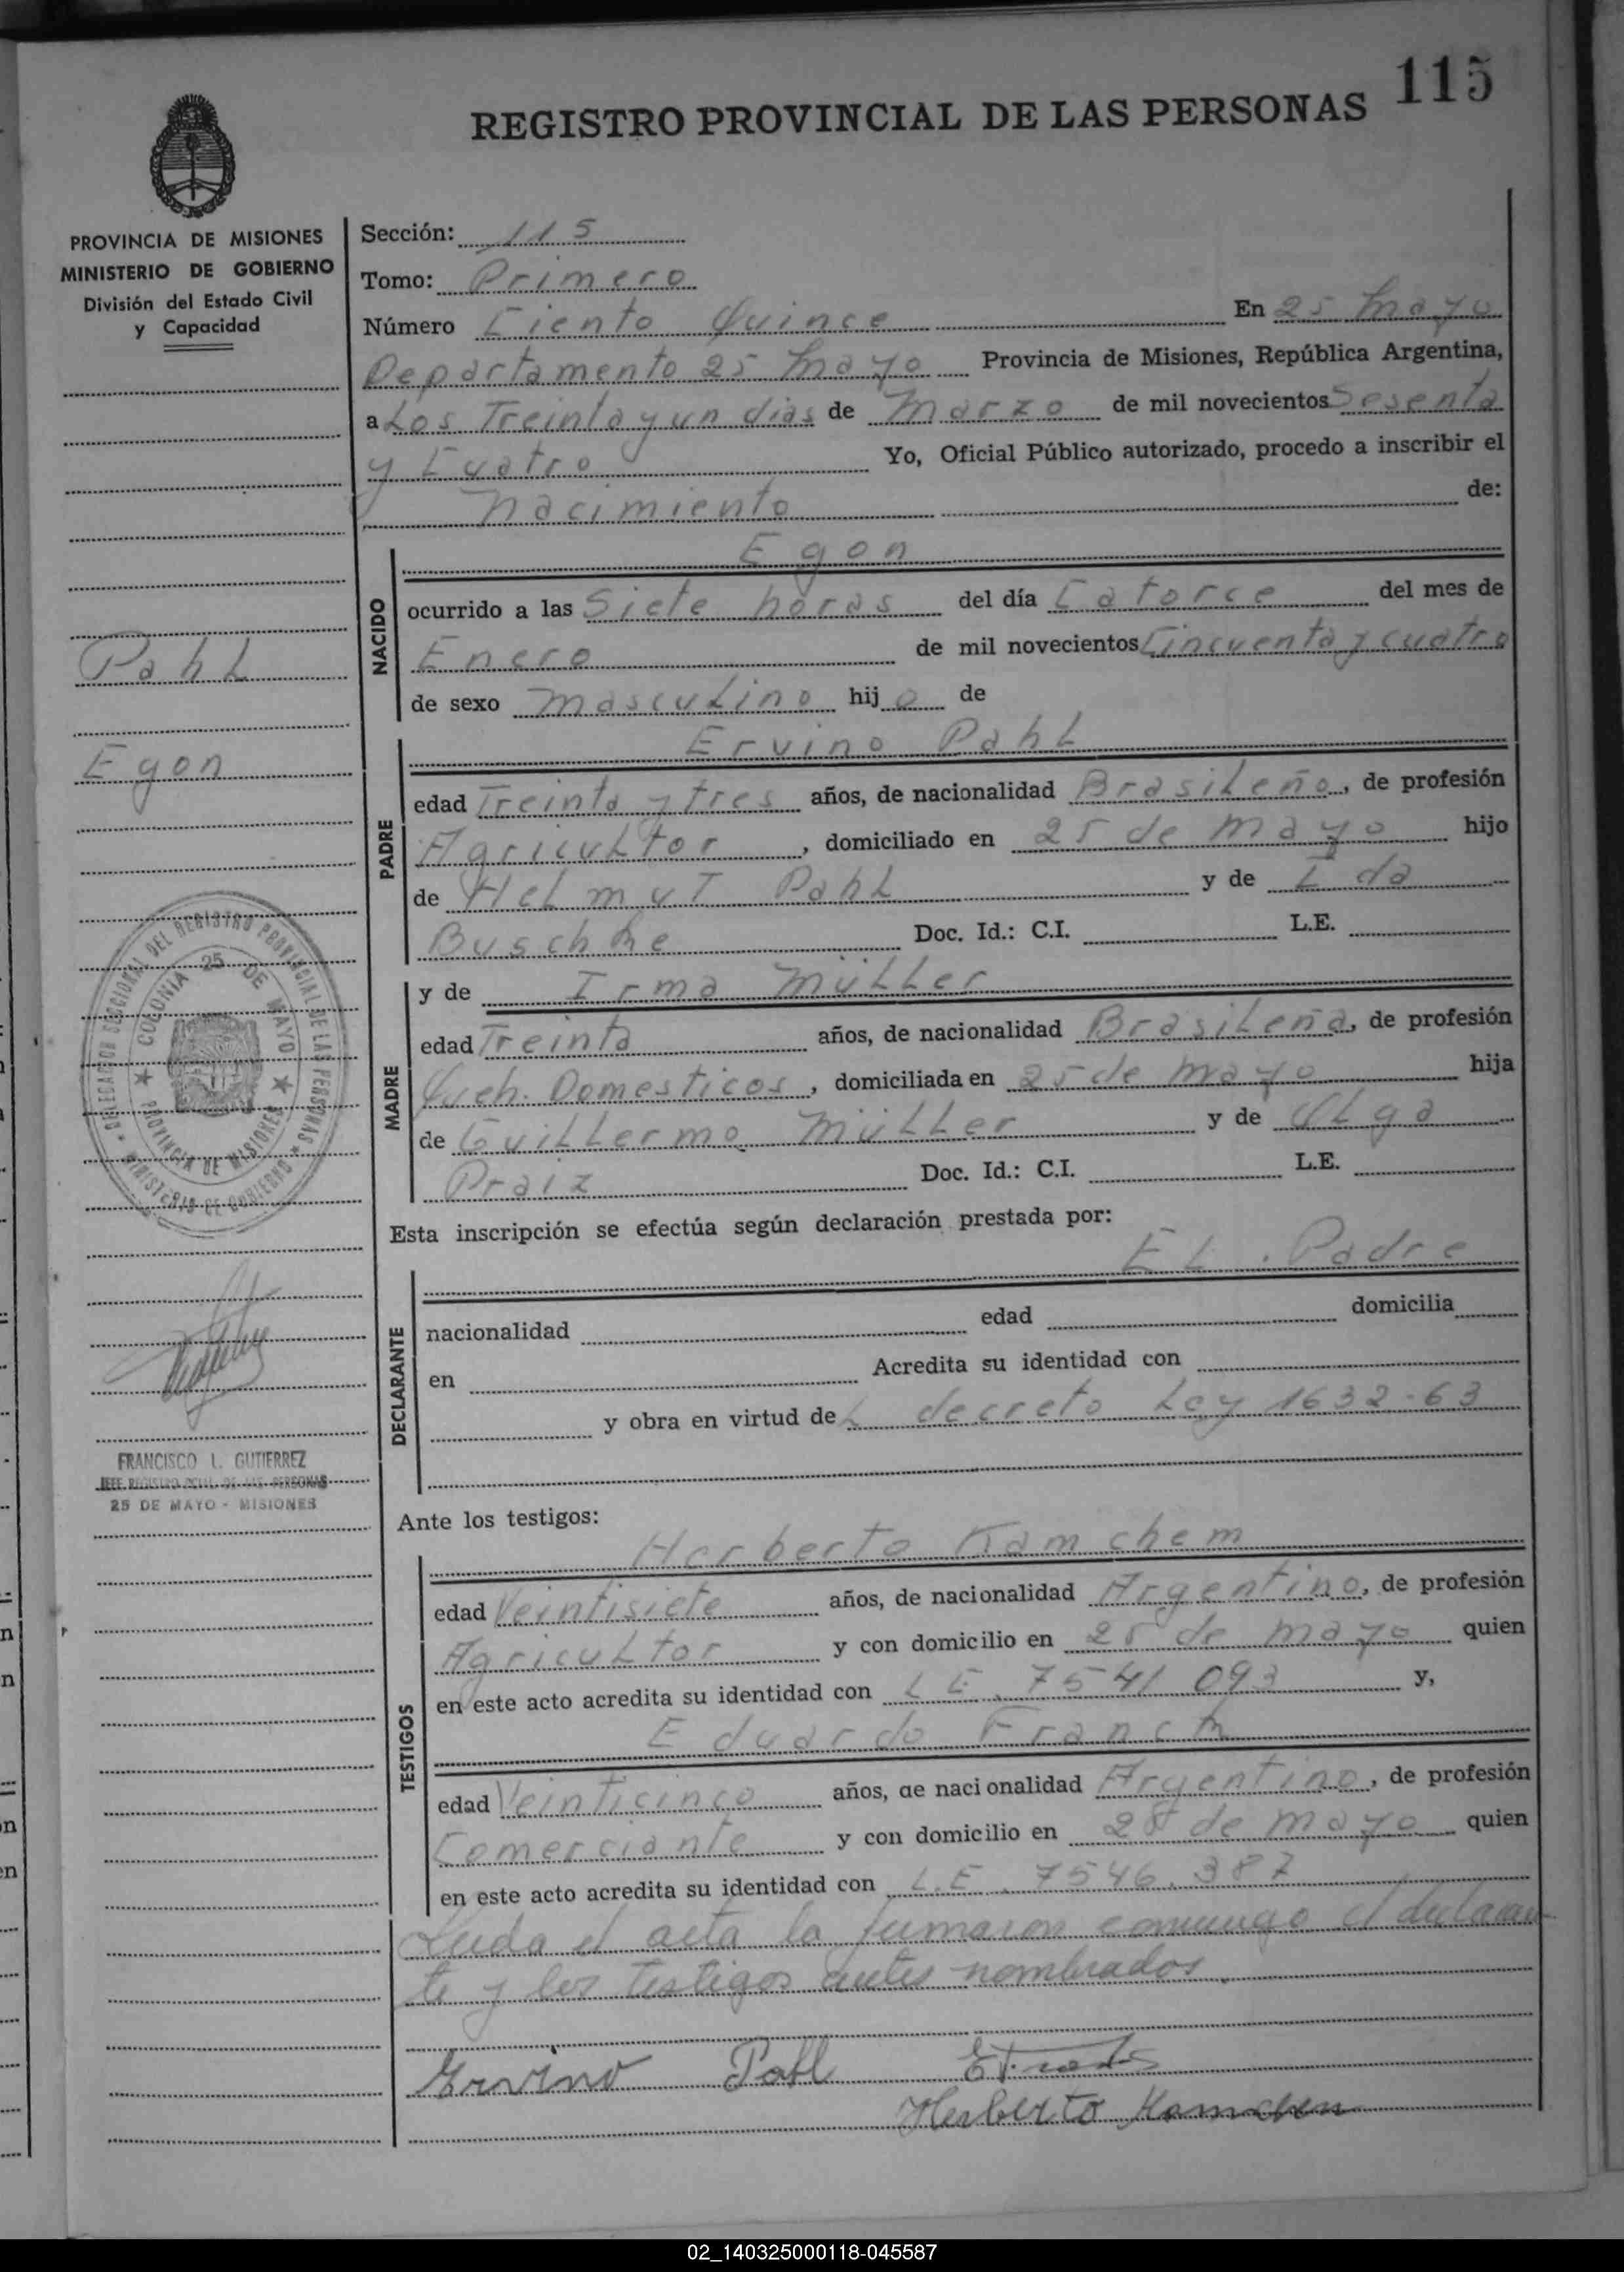 115
REGISTRO PROVINCIAL DE LAS PERSONAS
PROVINCIA DE MISIONES
MINISTERIO DE GOBIERNO
División del Estado Civil
y Capacidad
Pahl
Egon
DELEGACION SECCIONAL DEL REGISTRO PROVINCIAL DE LAS PERSONAS
MINISTERIO DE GOBIERNO
COLONIA 25 DE MAYO
PROVINCIA DE MISIONES
FRANCISCO L. GUTIERREZ
JEFE REGISTRO PCIAL. DE LAS PERSONAS
25 DE MAYO - MISIONES
Sección: 115
Tomo: Primero
Número Ciento Quince En 25 Mayo
Departamento 25 Mayo Provincia de Misiones, República Argentina,
a Los Treinta y un dias de Marzo de mil novecientos Sesenta
y Cuatro Yo, Oficial Público autorizado, procedo a inscribir el
nacimiento de:
NACIDO
Egon
ocurrido a las Siete horas del día Catorce del mes de
Enero de mil novecientos Cincuenta y cuatro
de sexo masculino hijo de
PADRE
Ervino Pahl
edad Treinta y tres años, de nacionalidad Brasileño, de profesión
Agricultor, domiciliado en 25 de Mayo hijo
de Helmut Pahl y de Eda
Buschke Doc. Id.: C.I. L.E.
MADRE
y de Irma Müller
edad Treinta años, de nacionalidad Brasileña, de profesión
Queh. Domesticos, domiciliada en 25 de Mayo hija
de Guillermo Müller y de Olga
Praiz Doc. Id.: C.I. L.E.
Esta inscripción se efectúa según declaración prestada por:
DECLARANTE
El Padre
nacionalidad edad domicilia
en Acredita su identidad con
y obra en virtud del decreto Ley 1632-63
Ante los testigos:
TESTIGOS
Herberto Kamchem
edad Veintisiete años, de nacionalidad Argentino, de profesión
Agricultor y con domicilio en 25 de Mayo quien
en este acto acredita su identidad con L E. 7541 093 y,
Eduardo Franck
edad Veinticinco años, de nacionalidad Argentino, de profesión
Comerciante y con domicilio en 25 de Mayo quien
en este acto acredita su identidad con L.E. 7546.387
Leida el acta la firmaron conmigo el declaran
te y los testigos antes nombrados.
Ervino Pahl
Herberto Kamchen
02_140325000118-045587